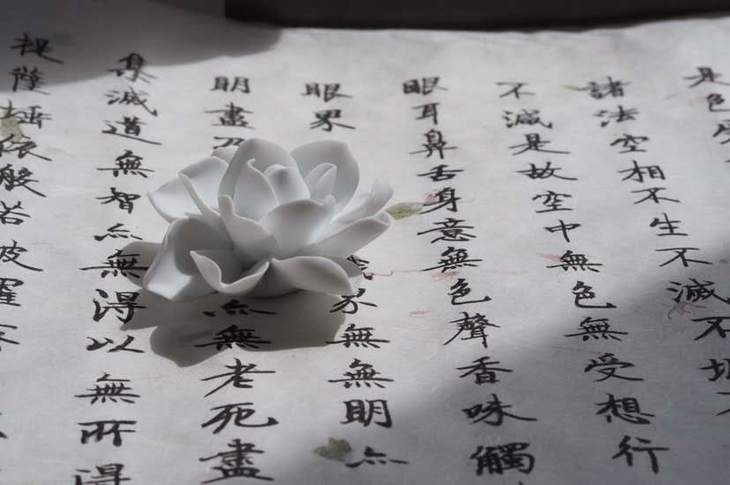 是色
諸法空相不生不滅不垢
不滅是故空中無色無受想行
眼耳鼻舌身意無色聲香味觸
眼界 界無無明亦
明盡 亦無老死盡
集滅道無智亦無得以無所得
提薩埵依般若波羅